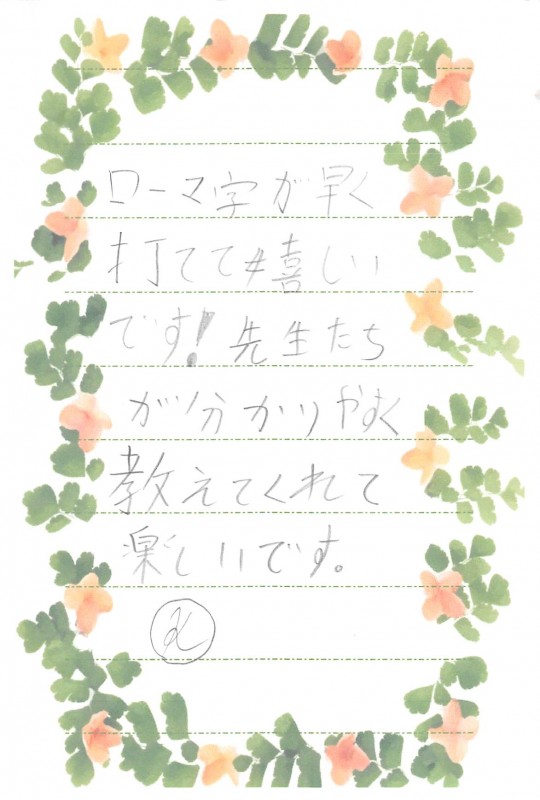 ローマ字が早く
打てて嬉しい
です!先生たち
が分かりやすく
教えてくれて
楽しいです。